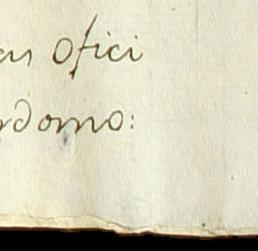 us Ofici
rdomo: